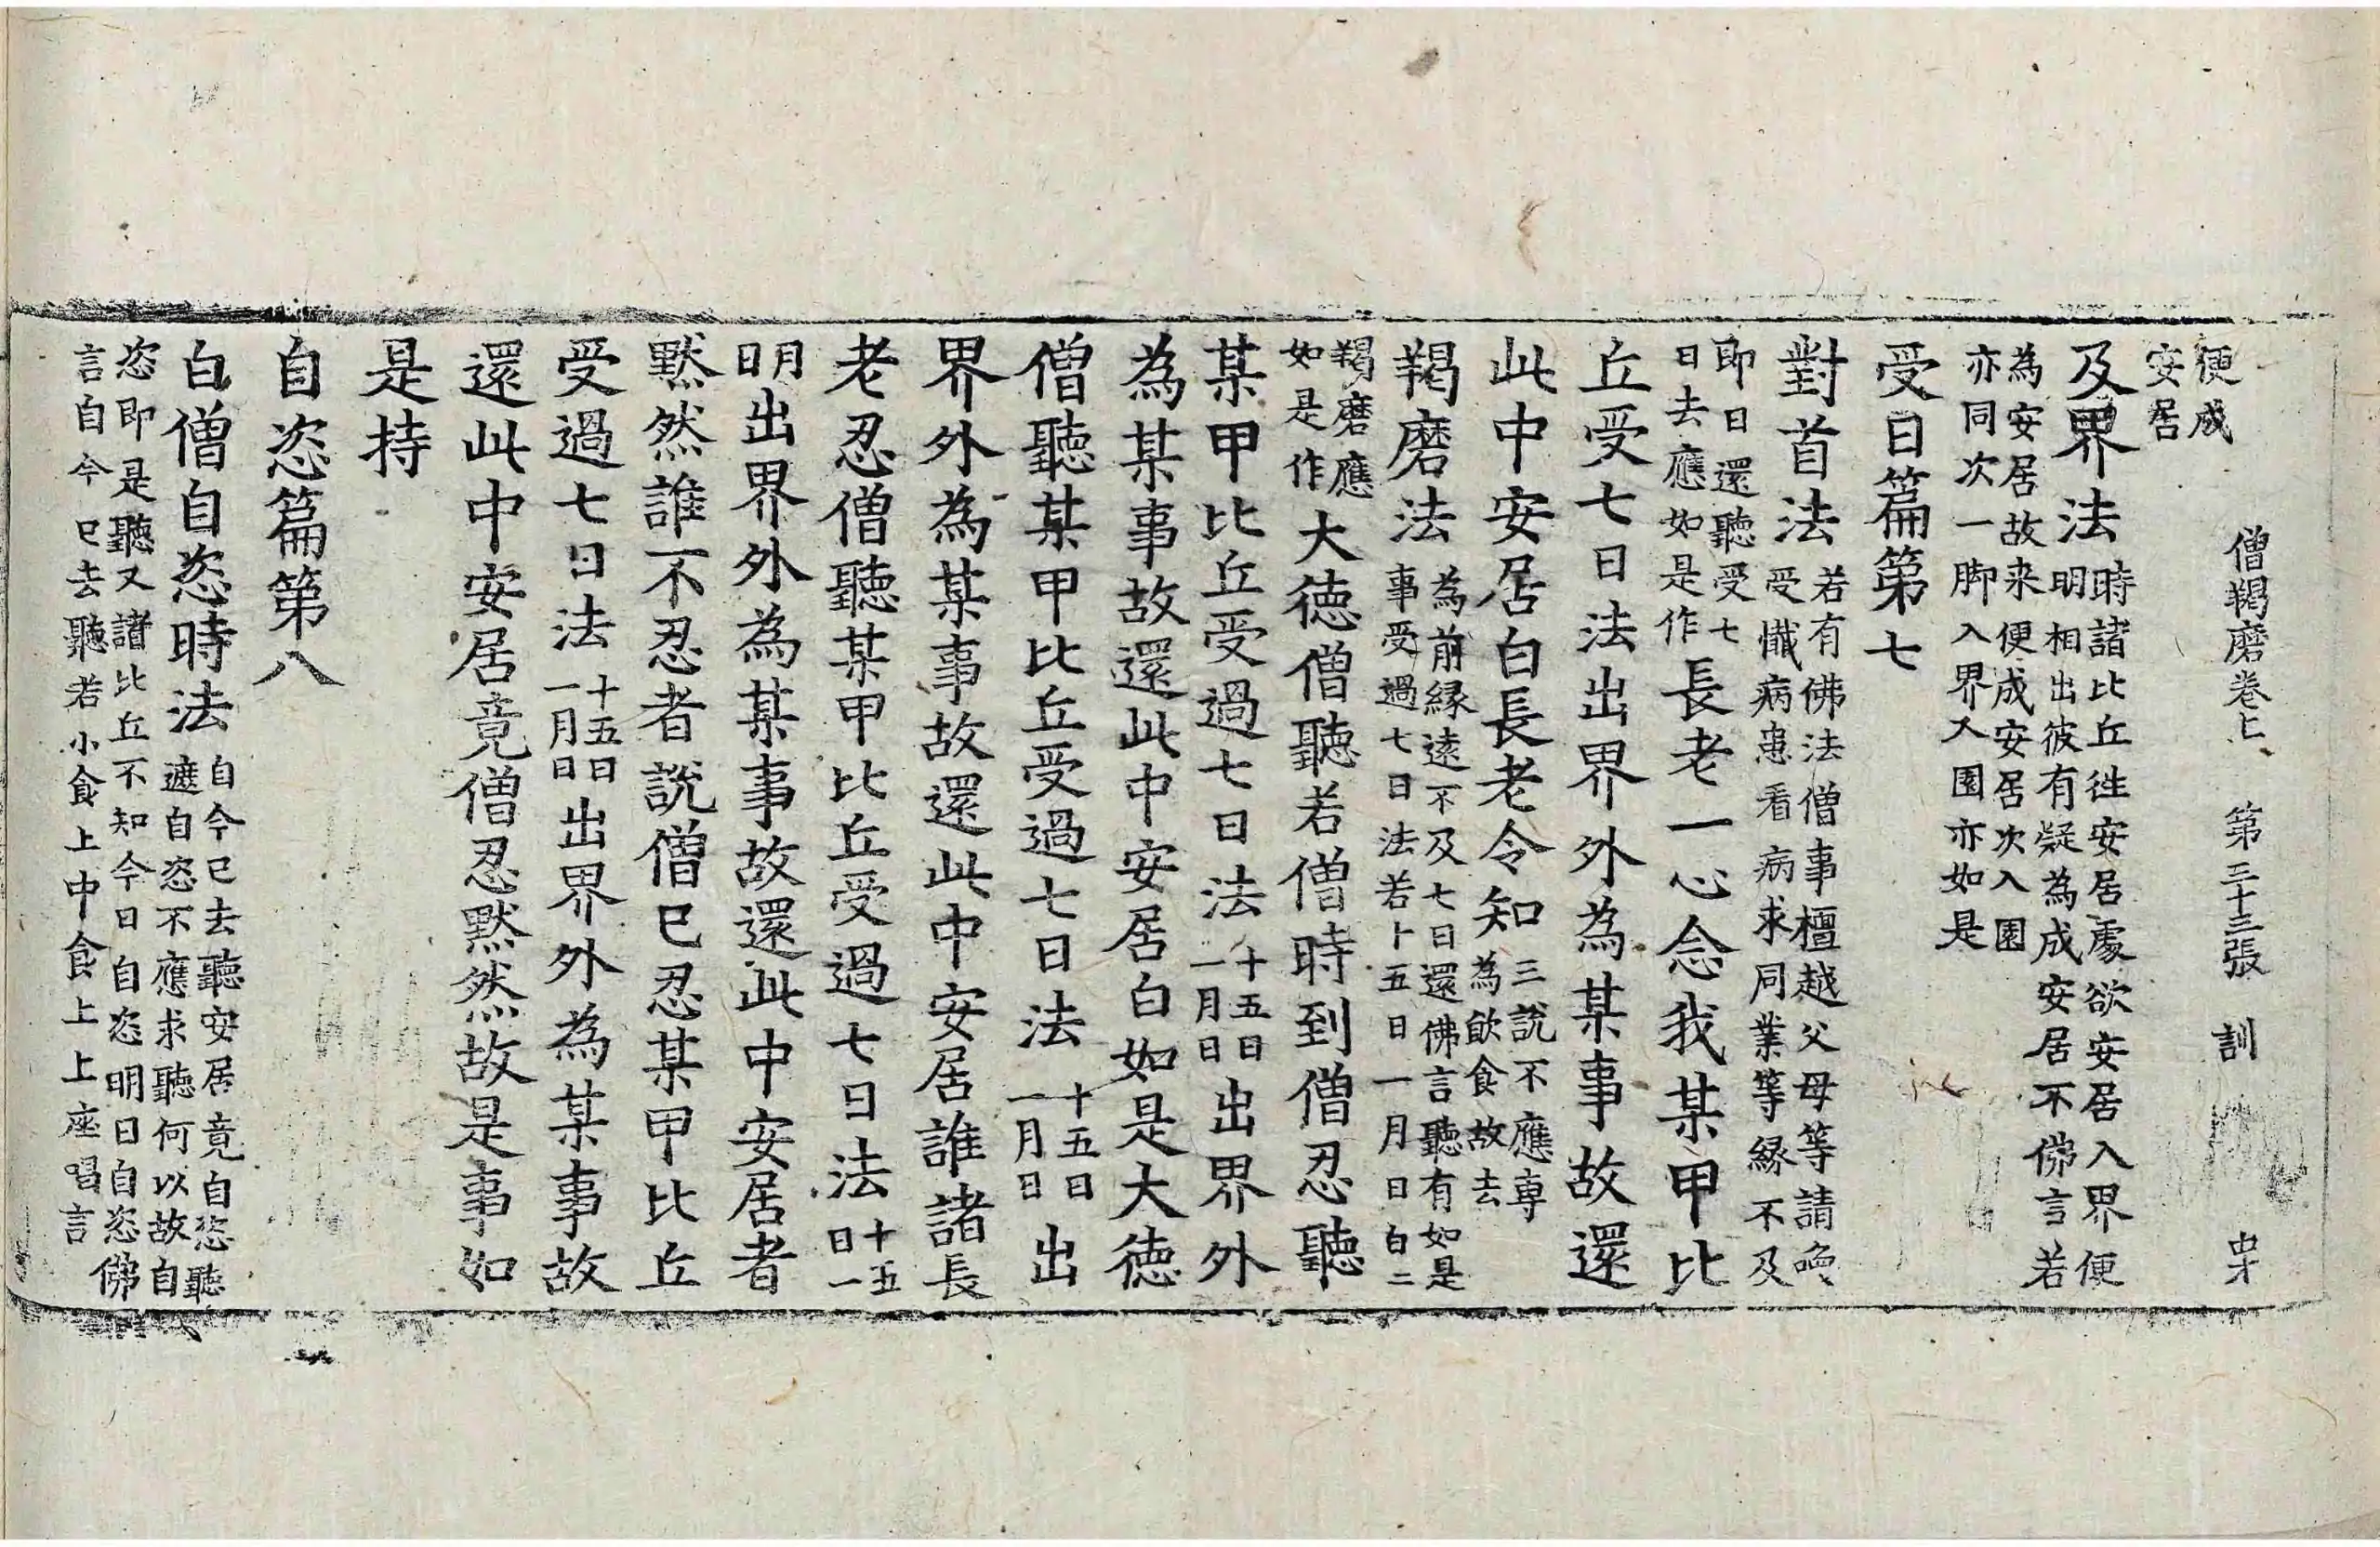 僧羯磨卷上 第二十三張 訓
便成
安居
及界法時諸比丘往安居處欲安居入界便
明相出彼有疑為成安居不佛言若
為安居故来便成安居次入園
亦同次一脚入界又園亦如是
受日篇第七
對首法若有佛法僧事檀越父母等請喚
受懺病患看病求同業等緣不及
即日還聽受七
日去應如是作長老一心念我某甲比
丘受七日法出界外為某事故還
此中安居白長老令知三說不應專
為飲食故去
羯磨法為前緣遠不及七日還佛言聽有如是
事受過七日法若十五日一月日白二
羯磨應
如是作大德僧聽若僧時到僧忍聽
某甲比丘受過七日法十五日
一月日出界外
為某事故還此中安居白如是大德
僧聽某甲比丘受過七日法十五日
一月日出
界外為某事故還此中安居誰諸長
老忍僧聽某甲比丘受過七日法十五
日一
月
日出界外為某事故還此中安居者
默然誰不忍者說僧已忍某甲比丘
受過七日法十五日
一月日出界外為某事故
還此中安居竟僧忍默然故是事如
是持
自恣篇第八
白僧自恣時法自今已去聽安居竟自恣聽
遮自恣不應求聽何以故自
恣即是聽又諸比丘不知今日自恣明日自恣佛
言自今已去聽若小食上中食上上座唱言